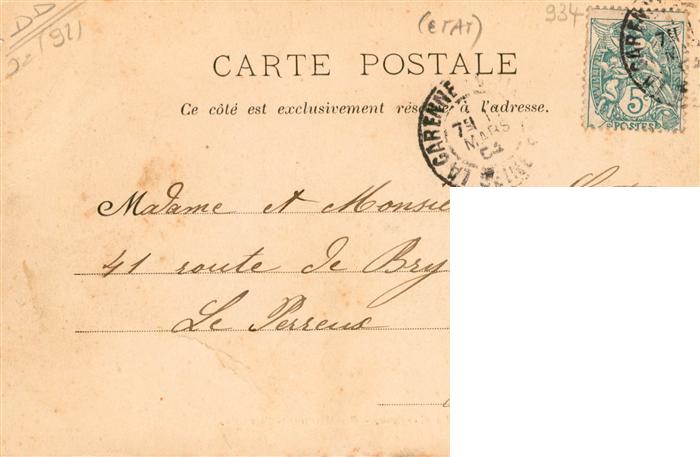 DD
(92)
(ETAT)
934
CARTE POSTALE
Ce côté est exclusivement réservé à l'adresse.
LA GARENNE
7E 11
MARS
04
GARENNE
5
POSTES
Madame et Monsie
41 route de Bry
Le Perreux